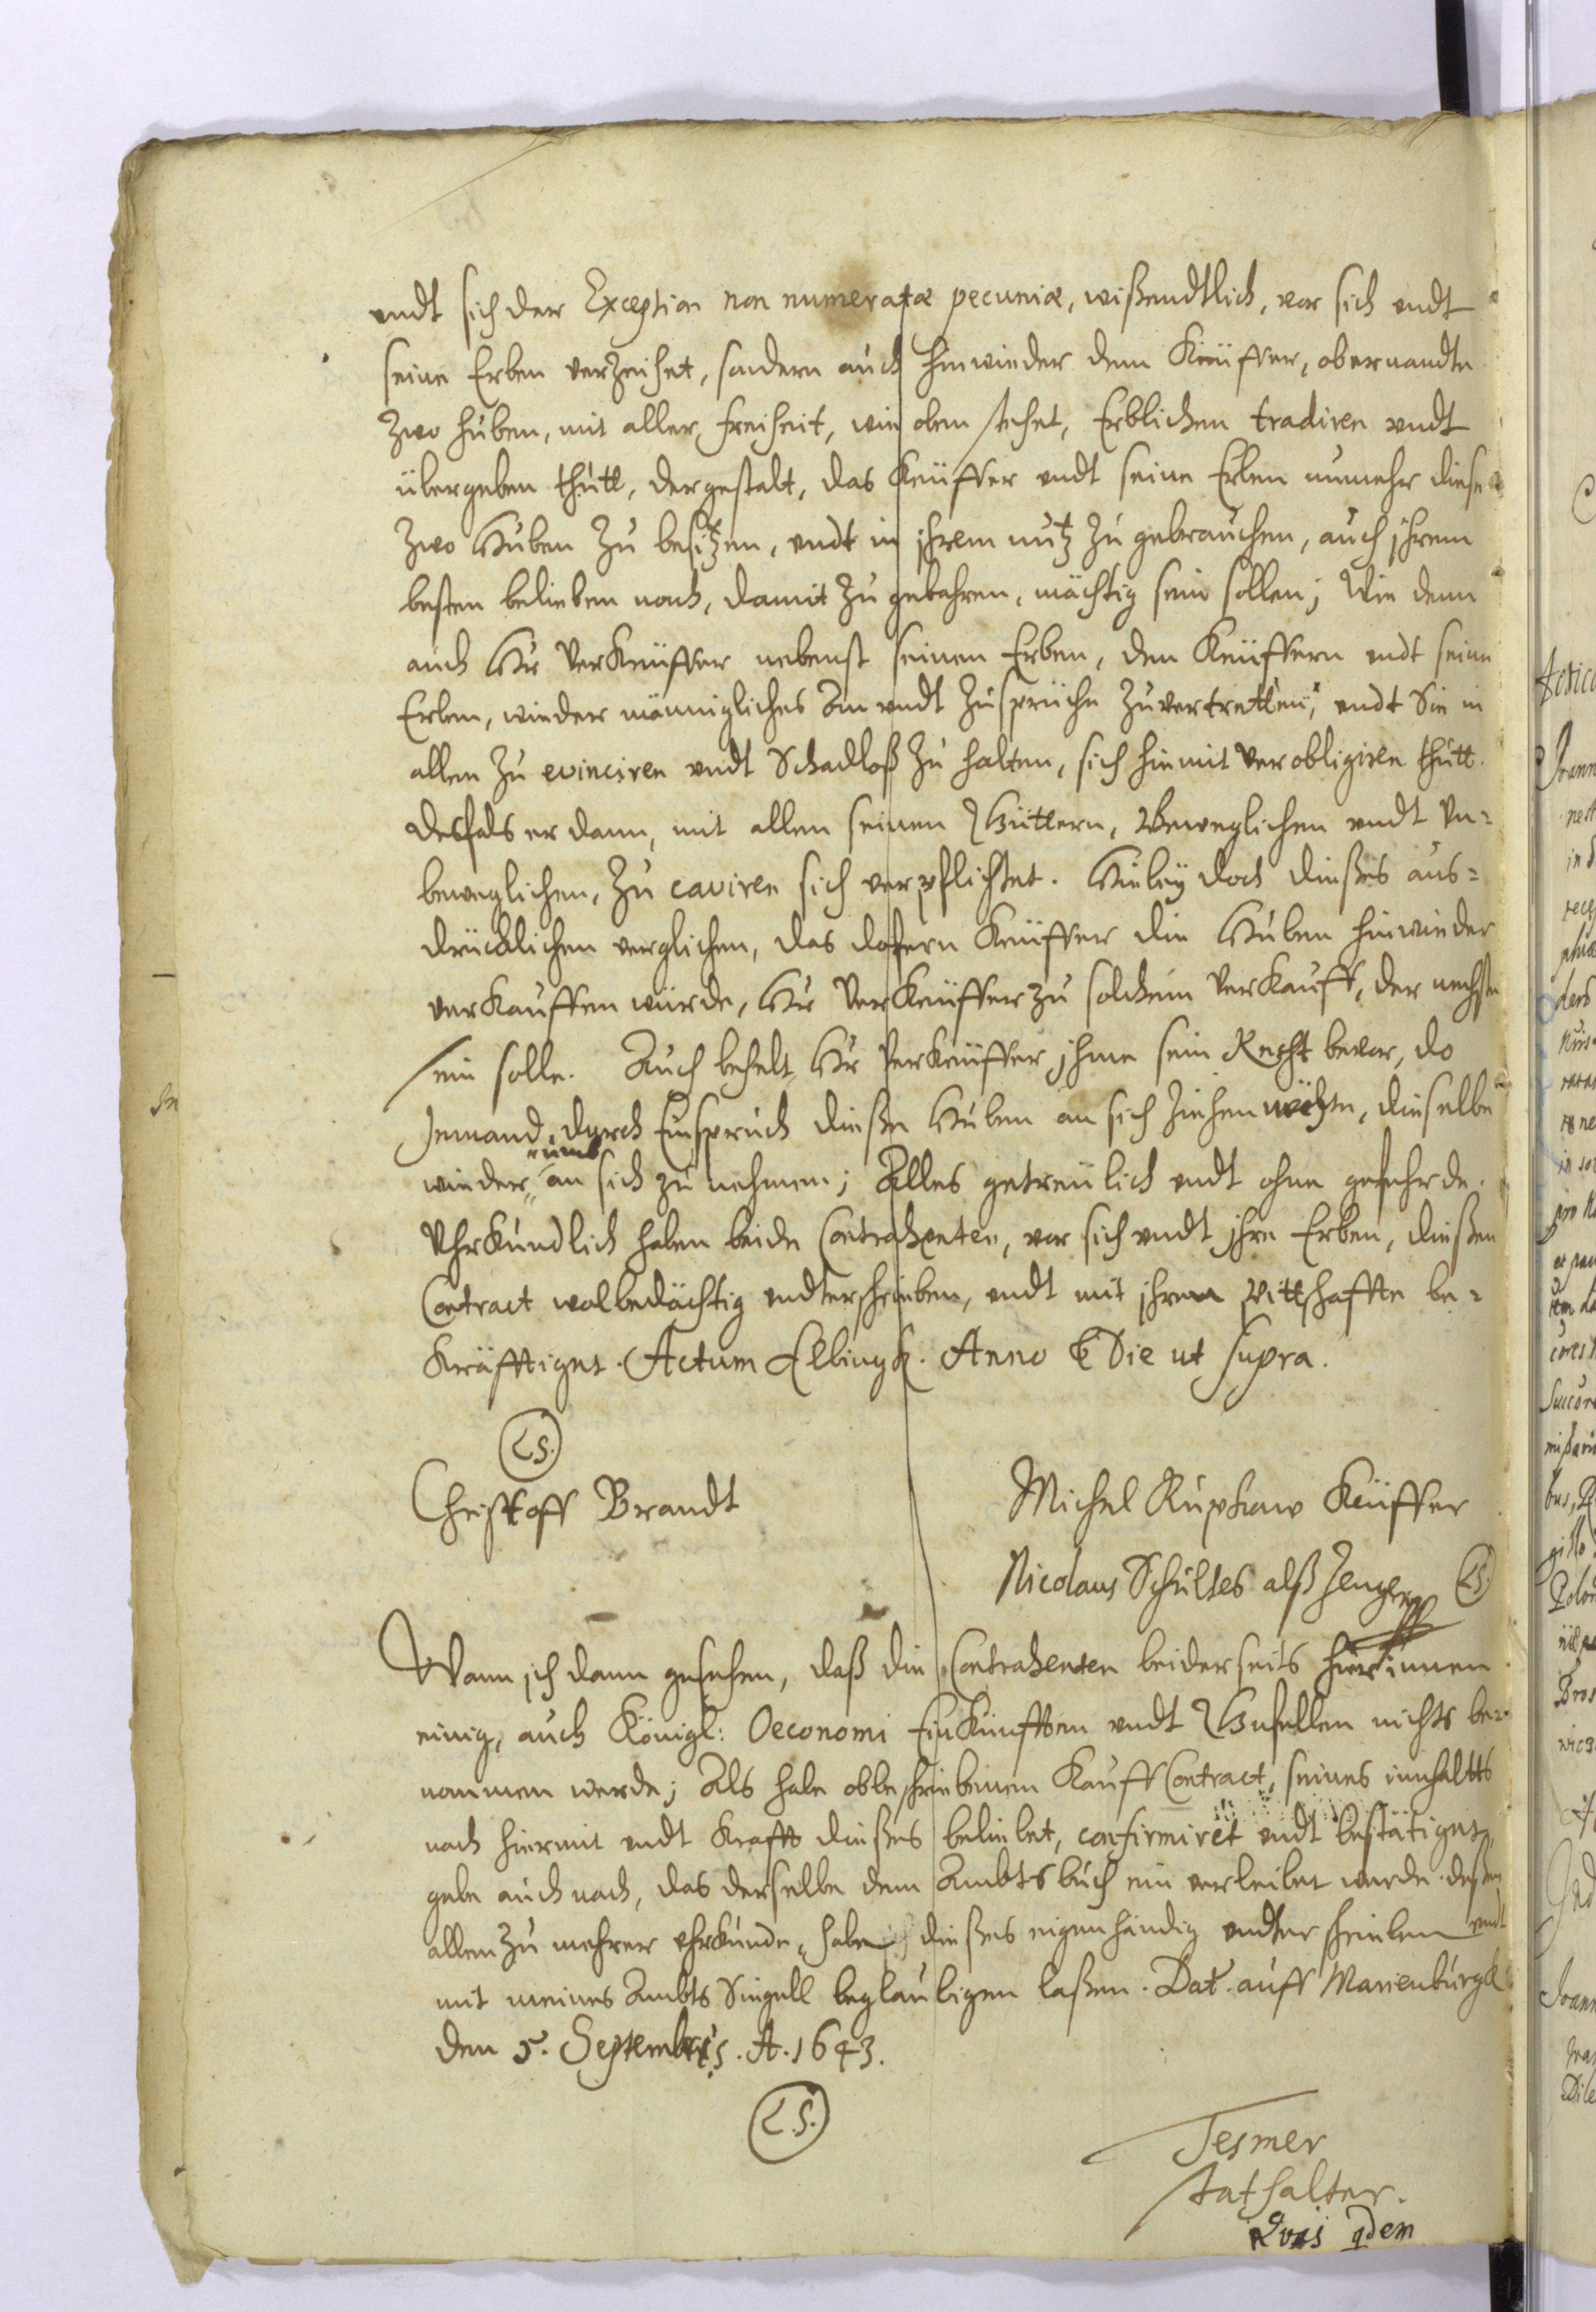 undt sich der Exception non numeratæ pecuniæ, wißendtlich, vor sich undt
seine Erben verzeihet, sondern auch hinwieder dem Keüffer, obernandte
zwo huben, mit aller freiheit, wie oben stehet, Erblichen tradiren undt
übergeben thutt, dergestalt, das Keüffer undt seine Erben nunmehr diese
zwo Huben zu besitzen, undt in ihrem nutz zu gebrauchen, auch ihrem
besten belieben nach, damit zu gebahren, mächtig sein sollen; Wie denn
auch Hr Verkeüffer nebenst seinen Erben, den Keüffern undt seine
Erben, wieder männigliches An undt Zusprüche zuvertretten, undt Sie in
allem zu evinciren undt Schadloß zu halten, sich hiemit verobligiren thutt.
desfals er dann, mit allen seinen Güttern, Beweglichen undt Un=
beweglichen, zu caviren sich verpflichtet. Hiebeÿ doch dießes aus=
drücklichen verglichen, das dofern Keüffer die Huben hinwieder
verkauffen würde, Hr Verkeüffer zu solchem Verkauff, der nechste
sein solle. Auch behelt Hr Verkeüffer ihme sein Recht bevor, do
Jemand, durch Einspruch dieße Huben an sich ziehen möchte, dieselbe
wieder umb an sich zu nehmen; Alles getreülich undt ohne gefehrde.
Uhrkundlich haben beide Contrahenten, vor sich undt ihre Erben, dießen
Contract wolbedächtig undterschrieben, undt mit ihrem Pittschafften be=
kräfftiget. Actum Elbingk. Anno & Die ut supra.
L.S.
Christoff Brandt
Michel Ruphaw Keüffer
Nicolaus Schultes alß Zeuge L.S.
Wann ich dann gesehen, daß die Contrahenten beiderseits hierinnen
einig, auch Königl: Oeconomi Einkünfften undt Gefellen nichts be=
nommen werde; Als habe obbeschriebenen Kauff Contract, seines innhaltts
nach hiermit undt krafft dießes beliebet, confirmiret undt bestätiget,
gebe auch nach, das derselbe dem Ambtsbuch ein verleibet werde. deßen
allen zu mehrer uhrkunde, habe ich dießes eigenhändig undterschrieben undt
mit meines Ambts Siegell beglaubigen laßen. Dat. auff Marienburgk
den 5. Septembris. A. 1643.
L.S.
Tesmer
Stathalter.